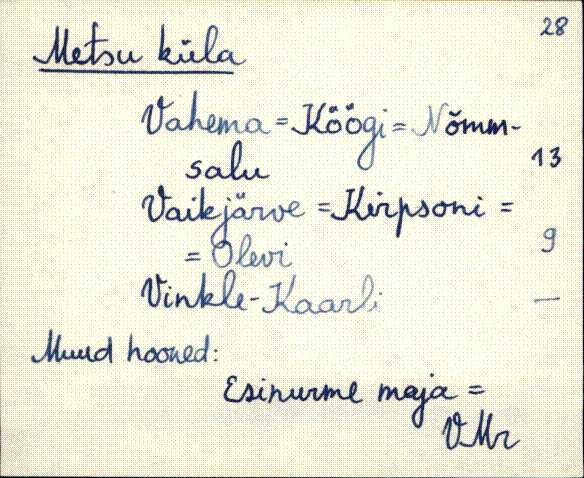 28
Metsu küla
Vahema = Köögi = Nõmm-
salu 13
Vaikjärve = Kirpsoni =
= Olevi 9
Vinkle-Kaarli —
Muud hooned:
Esinurme maja =
VMr